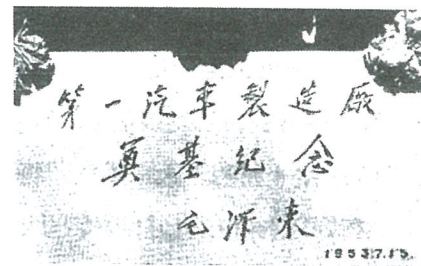 第一汽車製造廠
奠基紀念
毛泽東
1953.7.15.